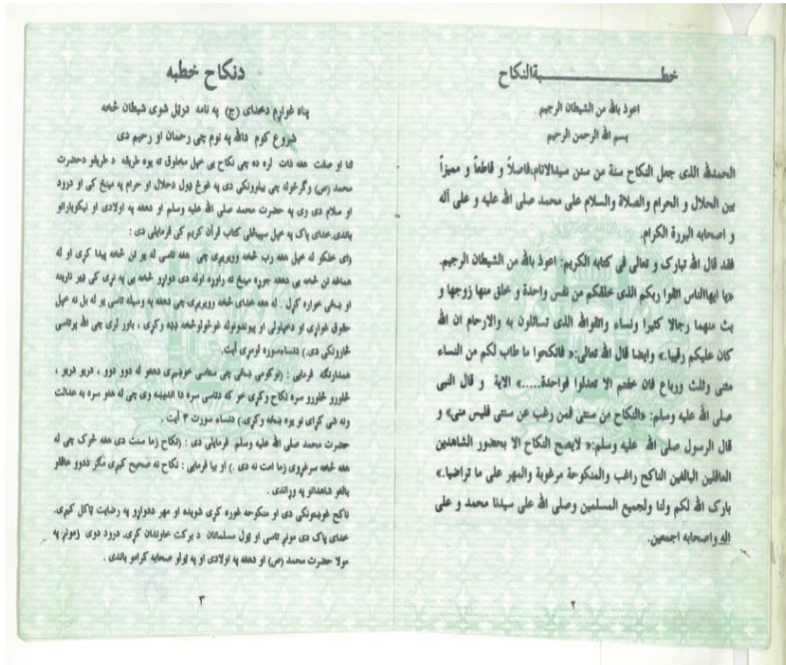 خطبةالنکاح
اعوذ بالله من الشیطان الرجیم
بسم الله الرحمن الرحیم
الحمدلله الذی جعل النکاح سنة من سنن سیدالانام،فاصلاً و قاطعاً و ممیزاً
بین الحلال و الحرام والصلاة والسلام علی محمد صلی الله علیه و علی آله
و اصحابه البررة الکرام.
فقد قال الله تبارک و تعالی فی کتابه الکریم: اعوذ بالله من الشیطان الرجیم.
«یا ایهاالناس اتقوا ربکم الذی خلقکم من نفس واحدة و خلق منها زوجها و
بث منهما رجالا کثیرا ونساء واتقوالله الذی تسائلون به والارحام ان الله
کان علیکم رقیبا.» وایضا قال الله تعالی:« فانکحوا ما طاب لکم من النساء
مثنی وثلث ورباع فان خفتم الا تعدلوا فواحدة.....» الایة و قال النبی
صلی الله علیه وسلم: «النکاح من سنتی فمن رغب عن سنتی فلیس منی» و
قال الرسول صلی الله علیه وسلم:« لایصح النکاح الا بحضور الشاهدین
العاقلین البالغین الناکح راغب والمنکوحة مرغوبة والمهر علی ما تراضیا.»
بارک الله لکم ولنا ولجمیع المسلمین وصلی الله علی سیدنا محمد و علی
اله واصحابه اجمعین.
۲
دنکاح خطبه
پناه غواړم دخدای (ج) په نامه درټل شوی شیطان څخه
شروع کوم دالله په نوم چی رحمان او رحیم دی
ثنا او صفت هغه ذات لره ده چی نکاح یی خپل مخلوق ته یوه طریقه د طریقو دحضرت
محمد (ص) وګرځوله چی بیلوونکی دی په څوغ ډول دحلال او حرام په مینځ کی او درود
او سلام دی وی په حضرت محمد صلی الله علیه وسلم او دهغه په اولادی او نیکویارانو
باندی.خدای پاک په خپل سپیڅلی کتاب قرآن کریم کی فرمایلی دی :
(ای خلکو له خپل هغه رب څخه وویریږی چی هغه تاسی له یو تن څخه پیدا کړی او له
همافه تن څخه یی دهغه جوړه مینځ ته راوړه اوله دی دواړو څخه یی په نړی کی ډیر نارینه
او ښځی خواره کړل . له هغه خدای څخه وویریږی چی دهغه په وسیله تاسی یو له بل نه خپل
حقوق غواړی او دخپلولی او پیوندونوله غوڅولوڅخه ډډه وکړی ، باور لری چی الله پرتاسی
څارونکی دی.) دنساءسوره لومړی آیت.
همدارنګه فرمایی : (نوکومی ښځی چی ستاسی خوښیږی دهغو له دوو دوو ، دریو دریو ،
څلورو څلورو سره نکاح وکړی خو که دتاسی سره دا اندیښنه وی چی له هغو سره به عدالت
ونه شی کړای نو یوه ښځه وکړی.) دنساء سورت ۳ آیت .
حضرت محمد صلی الله علیه وسلم فرمایلی دی : (نکاح زما سنت دی هغه څوک چی له
هغه څخه سرغړوی زما امت نه دی .) او بیا فرمایی : نکاح نه صحیح کیږی مګر ددوو عاقلو
بالغو شاهدانو په وړاندی .
ناکح غوښتونکی دی او منکوحه غوره کړی شویده او مهر ددواړو په رضایت ټاکل کیږی.
خدای پاک دی مونږ تاسی او ټول مسلمانان د برکت خاوندان کړی. درود دوی زمونږ په
مولا حضرت محمد (ص) او دهغه په اولادی او په ټولو صحابه کرامو باندی .
۳